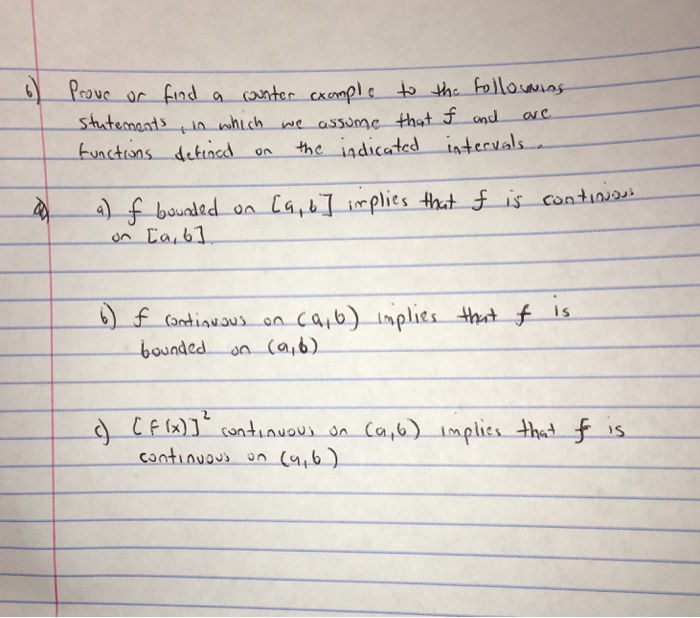 6) Prove or find a counter example to the following
statements, in which we assume that f and are
functions defined on the indicated intervals.
a) f bounded on [a,b] implies that f is continuous
on [a,b].
b) f continuous on (a,b) implies that f is
bounded on (a,b)
c) [f(x)]² continuous on (a,b) implies that f is
continuous on (a,b)